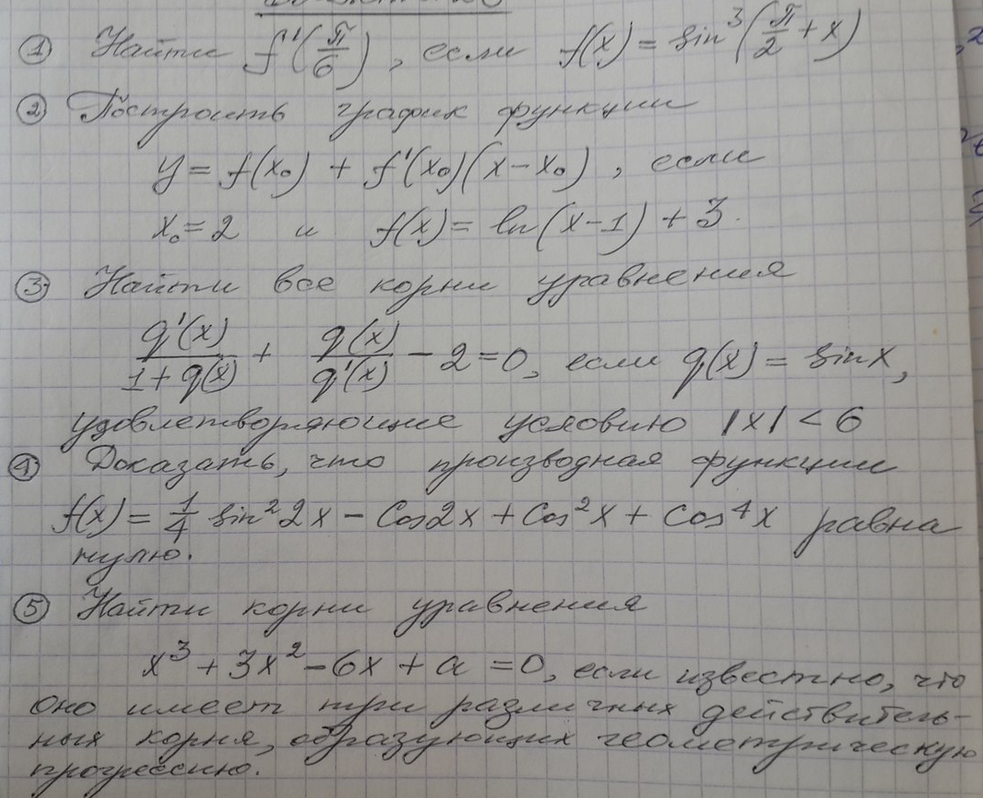 ① Найти f'(π/6), если f(x) = sin³(π/2 + x)
② Построить график функции
y = f(x₀) + f'(x₀)(x - x₀), если
x₀ = 2 и f(x) = ln(x-1) + 3.
③ Найти все корни уравнения
q'(x)/(1 + q(x)) + q(x)/q'(x) - 2 = 0, если q(x) = sin x,
удовлетворяющие условию |x| < 6
④ Доказать, что производная функции
f(x) = 1/4 sin² 2x - cos 2x + cos² x + cos⁴ x равна
нулю.
⑤ Найти корни уравнения
x³ + 3x² - 6x + a = 0, если известно, что
оно имеет три различных действитель-
ных корня, образующих геометрическую
прогрессию.